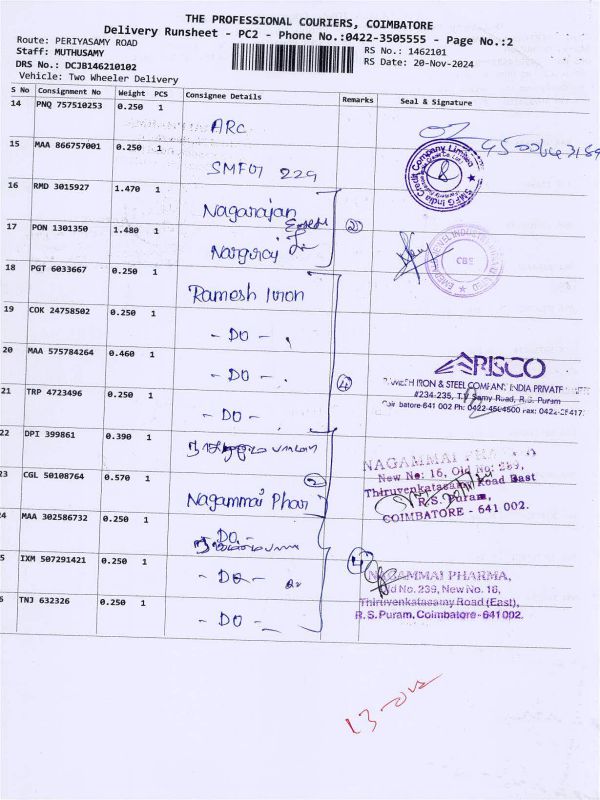 THE PROFESSIONAL COURIERS, COIMBATORE
Delivery Runsheet - PC2 - Phone No.:0422-3505555 - Page No.:2
Route: PERIYASAMY ROAD
RS No.: 1462101
Staff: MUTHUSAMY
RS Date: 20-Nov-2024
DRS No.: DCJB146210102
Vehicle: Two Wheeler Delivery
S No Consignment No Weight PCS Consignee Details Remarks Seal & Signature
14 PNQ 757510253 0.250 1 ARC
15 MAA 866757001 0.250 1 SMF01 229
SMFG India Credit Company Limited
16 RMD 3015927 1.470 1 Nagarajan
2
17 PON 1301350 1.480 1
CBE
18 PGT 6033667 0.250 1 Ramesh Iron
19 COK 24758502 0.250 1 - DO -
20 MAA 575784264 0.460 1 - DO -
ARISCO
4
IRON & STEEL COMPANY INDIA PRIVATE
#234-235, T.V. Samy Road, R.S. Puram
batore-641 002 Ph: 0422-4504500
21 TRP 4723496 0.250 1 - DO -
22 DPI 399861 0.390 1
NAGAMMAI
New No: 16, Old No: 239,
Thiruvenkatasamy Road East
R.S. Puram,
COIMBATORE - 641 002.
23 CGL 50108764 0.570 1 Nagammai Phar
2
24 MAA 302586732 0.250 1 - DO -
5 IXM 507291421 0.250 1 - DO -
NAGAMMAI PHARMA,
Old No. 239, New No. 16,
Thiruvenkatasamy Road (East),
R.S. Puram, Coimbatore-641 002.
6 TNJ 632326 0.250 1 - DO -
13